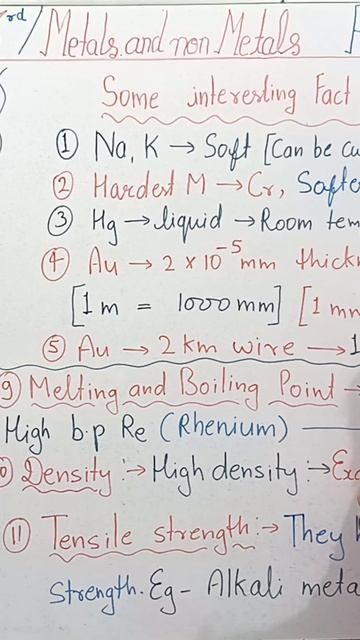 rd / Metals and non Metals
Some interesting Fact
① Na, K → Soft [Can be cu
② Hardest M → Cr, Softe
③ Hg → liquid → Room tem
④ Au → 2 × 10⁻⁵ mm thick
[1 m = 1000 mm] [1 mm
⑤ Au → 2 km wire → 1
9) Melting and Boiling Point →
High b.p Re (Rhenium)
0) Density :→ High density :→ Exc
⑪ Tensile strength :→ They h
Strength. Eg - Alkali meta